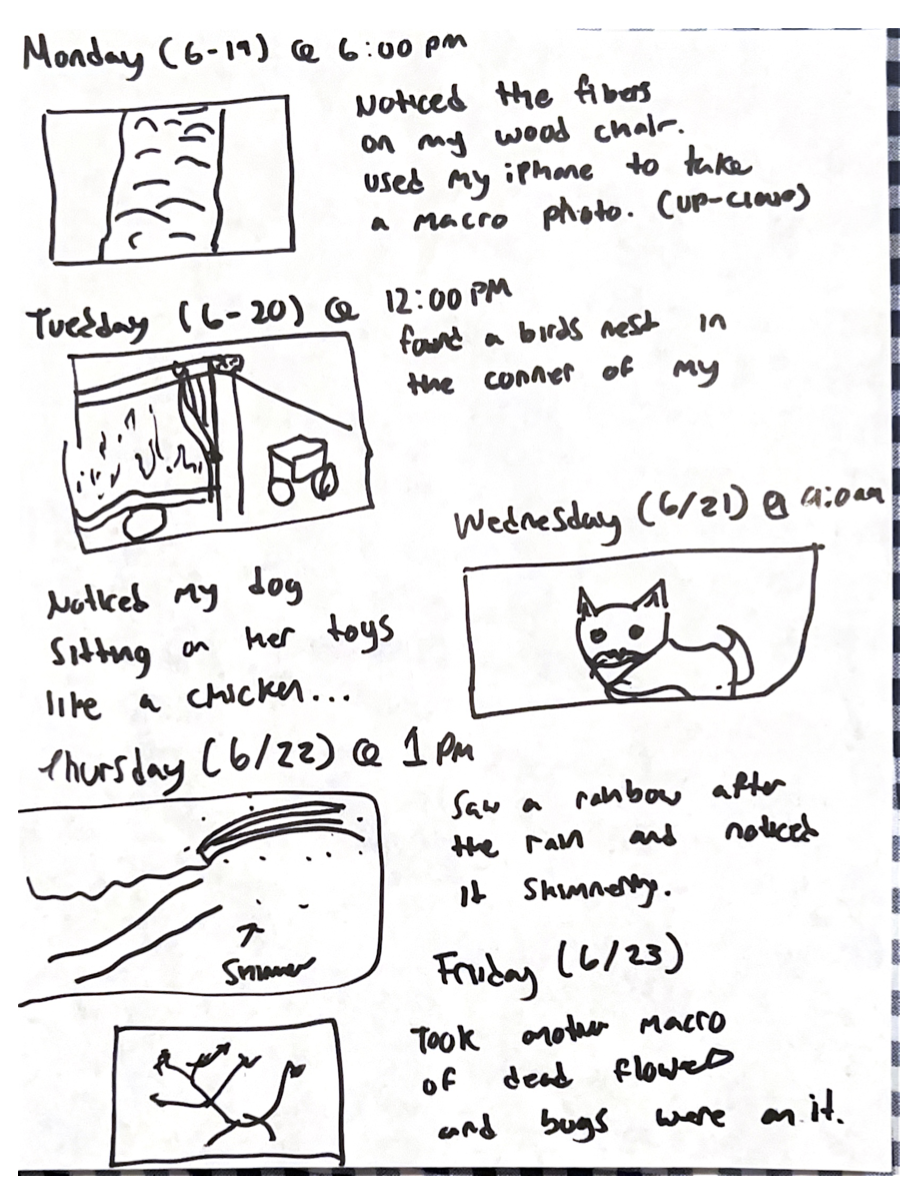 Monday (6-19) @ 6:00 pm
Noticed the fibers
on my wood chair.
used my iPhone to take
a macro photo. (up-close)
Tuesday (6-20) @ 12:00 PM
found a birds nest in
the conner of my
Wednesday (6/21) @
Noticed my dog
sitting on her toys
like a chicken...
Thursday (6/22) @ 1 PM
Saw a rainbow after
the rain and noticed
it
Friday (6/23)
Took another macro
of dead
and bugs were on it.